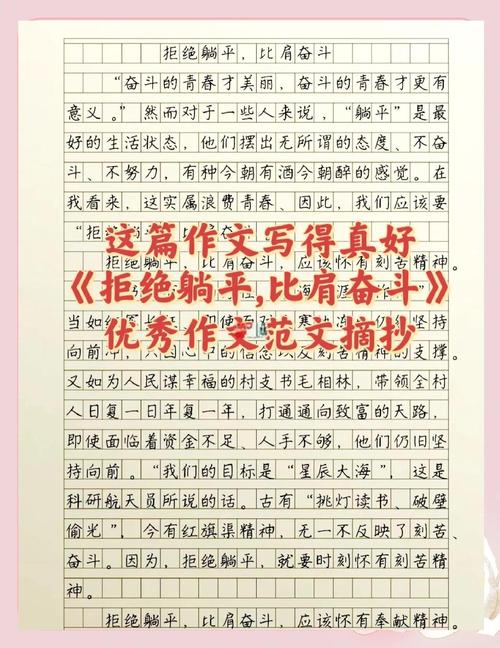 拒绝躺平，比肩奋斗
“奋斗的青春才美丽，奋斗的青春才更有
意义。”然而对于一些人来说，“躺平”是最
好的生活状态，他们摆出无所谓的态度、不奋
斗、不努力，有种今朝有酒今朝醉的感觉。在
我看来，这实属浪费青春、因此，我们应该要
“拒绝
这篇作文写得真好
应该怀有刻苦精神。
《拒绝躺平,比肩奋斗》
当如
坚持
优秀作文范文摘抄
向前
刻苦精神的支撑。
又如为人民谋幸福的村支书毛相林，带领全村
人日复一日年复一年，打通通向致富的天路，
即使面临着资金不足、人手不够，他们仍旧坚
持向前。“我们的目标是“星辰大海”，这是
科研航天员所说的话。古有“挑灯读书、破壁
偷光”，今有红旗渠精神，无一不反映了刻苦、
奋斗。因为，拒绝躺平，就要时刻怀有刻苦精
神。
拒绝躺平，比肩奋斗，应该怀有奉献精神。